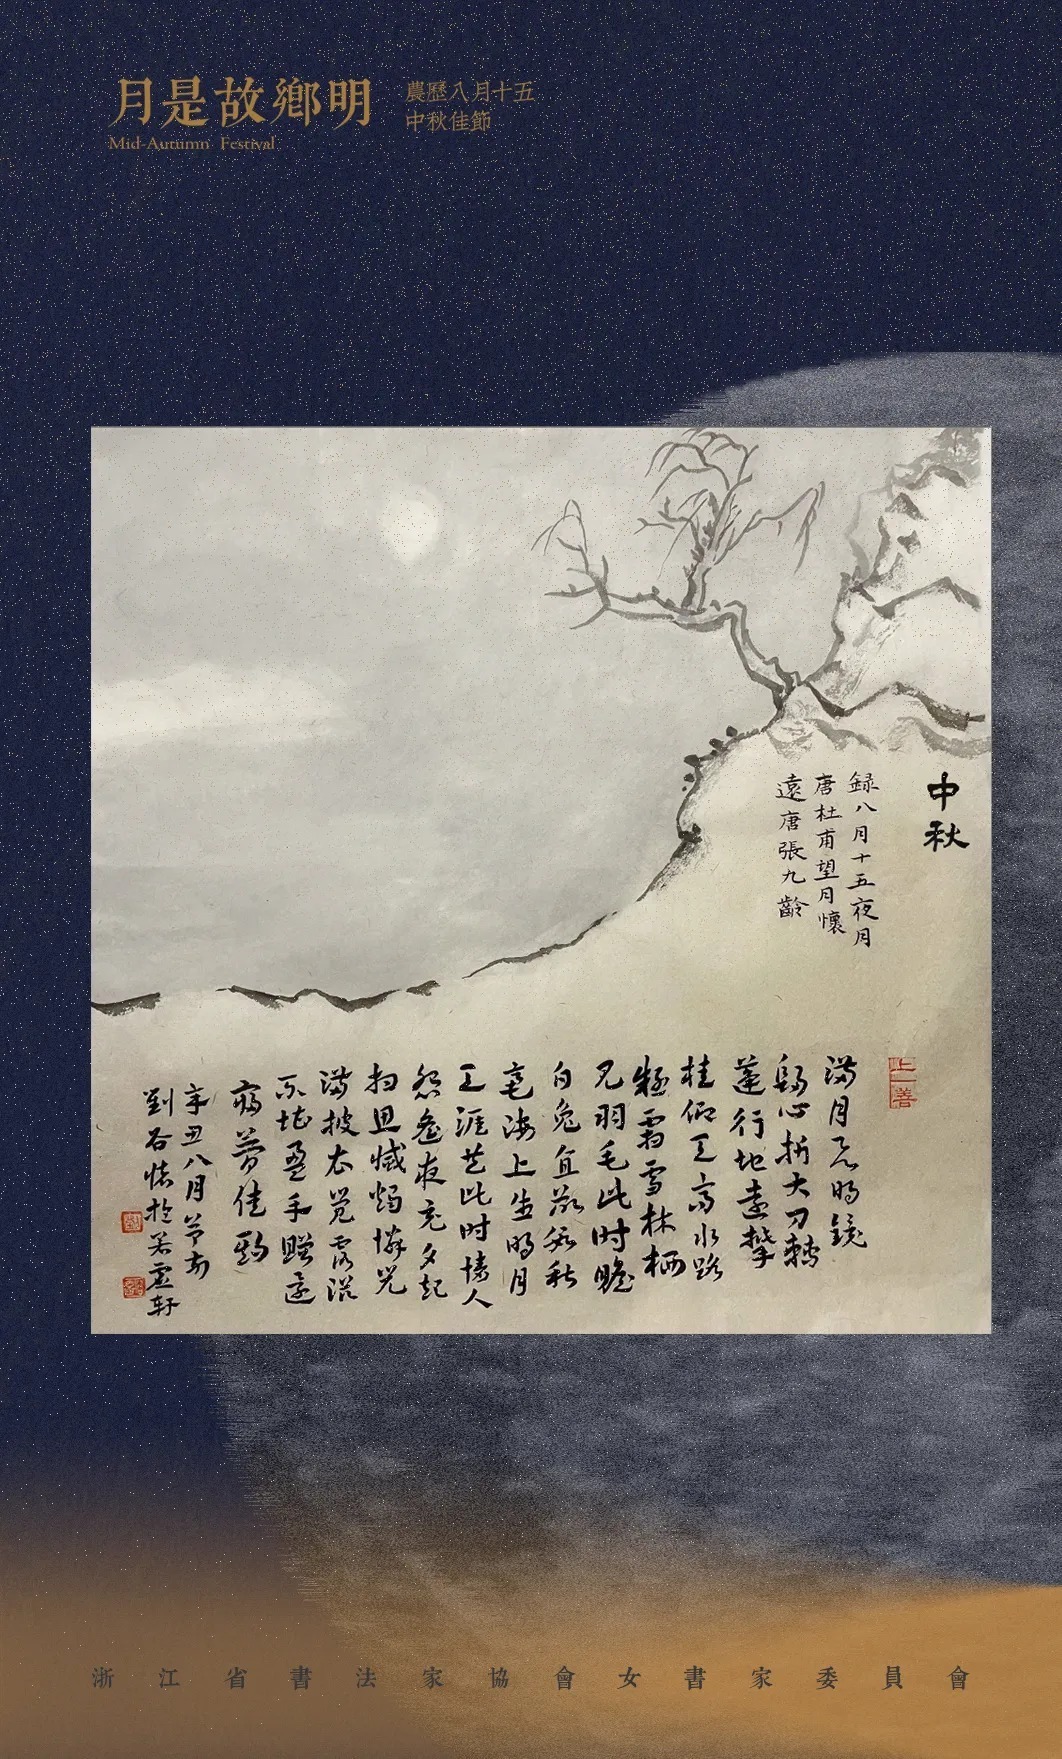 月是故鄉明
Mid-Autumn Festival
農歷八月十五
中秋佳節
中秋
録八月十五夜月
唐杜甫望月懷
遠唐張九齡
滿月飛明鏡
歸心折大刀轉
蓬行地遠攀
桂仰天高水路
疑霜雪林栖
見羽毛此時瞻
白兔直欲數秋
毫海上生明月
天涯共此時情人
怨遥夜竟夕起
相思滅燭憐光
滿披衣覺露滋
不堪盈手贈還
寢夢佳期
辛丑八月節前
劉谷於若虛轩
浙江省書法家協會女書家委員會